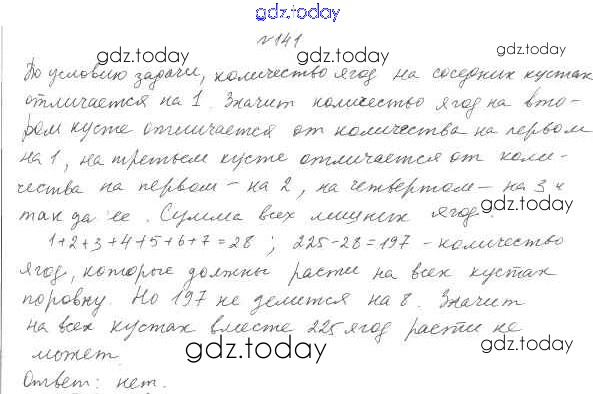 gdz.today
№141
gdz.today gdz.today
По условию задачи, количество ягод на соседних кустах
отличается на 1. Значит количество ягод на вто-
ром кусте отличается от количества на первом
на 1, на третьем кусте отличается от коли-
чества на первом - на 2, на четвертом - на 3 и
так да ее. Сумма всех лишних ягод:
gdz.today gdz.today
1+2+3+4+5+6+7=28 ; 225-28=197 - количество
ягод, которые должны расти на всех кустах
поровну. Но 197 не делится на 8. Значит
на всех кустах вместе 225 ягод расти не
может.
gdz.today gdz.today
Ответ: нет.